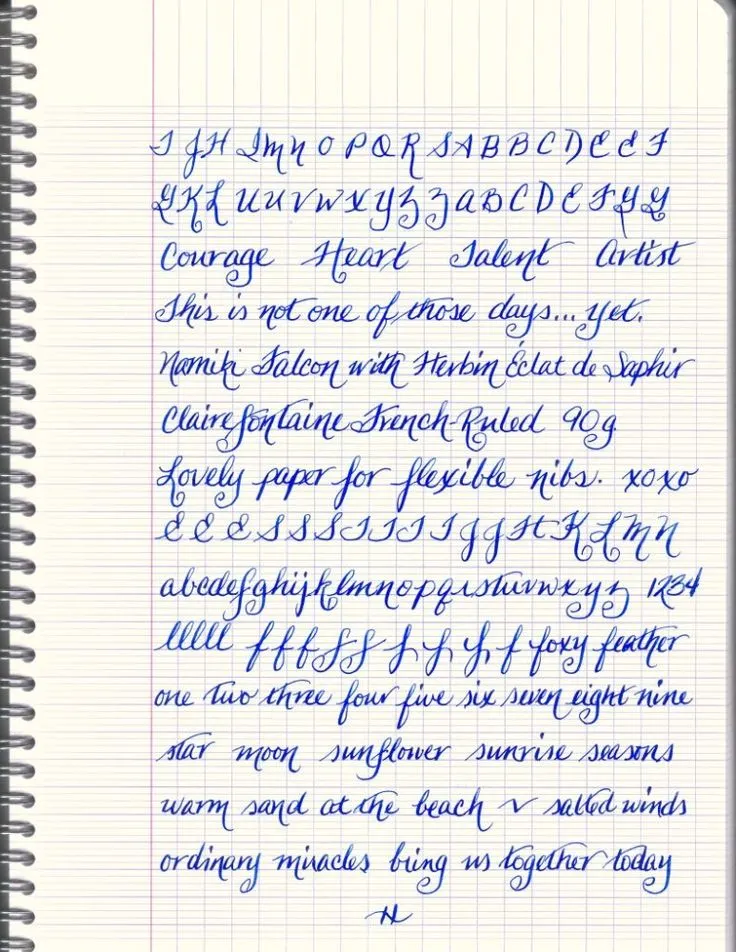 I J H I M N O P Q R S A B B C D E E F
Y K L U U V W X Y Z Z A B C D E F Y Y
Courage Heart Talent Artist
This is not one of those days... yet.
Namiki Falcon with Herbin Éclat de Saphir
Clairefontaine French-Ruled 90g
Lovely paper for flexible nibs. xoxo
E E E S S S I I I I J J H K L M N
abcdefghijklmnopqrstuvwxyz 1234
lllll f f f f f f f f f foxy feather
one two three four five six seven eight nine
star moon sunflower sunrise seasons
warm sand at the beach v salted winds
ordinary miracles bring us together today